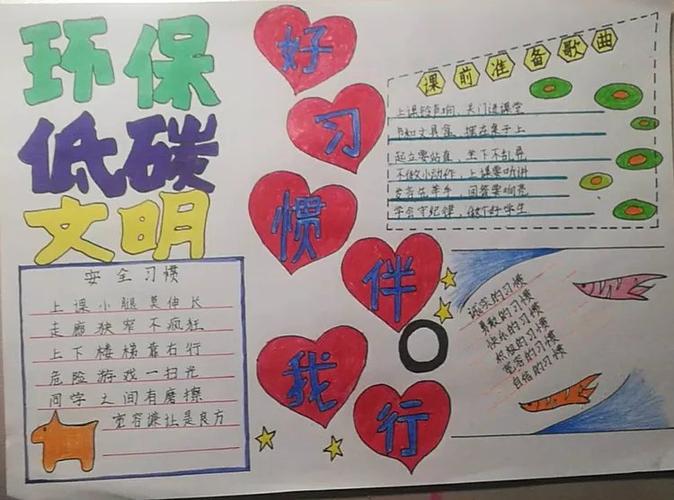 环保
低碳
文明
好习惯伴我行
课前准备歌曲
上课铃声响，关门进课堂
书和文具盒，摆在桌子上
起立要站直，坐下不乱晃
不做小动作，上课要听讲
发言先举手，回答要响亮
学会守纪律，做个好学生
安全习惯
上课小腿莫伸长
走廊狭窄不疯狂
上下楼梯靠右行
危险游戏一扫光
同学之间有磨擦
宽容谦让是良方
诚实的习惯
勇敢的习惯
快乐的习惯
积极的习惯
宽容的习惯
自信的习惯